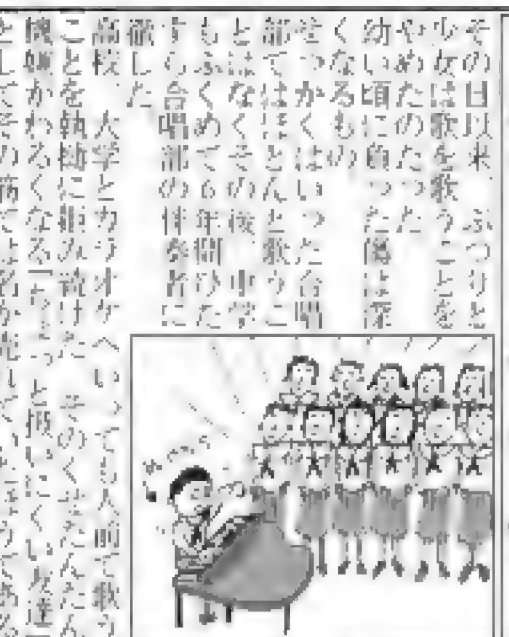 その日以来、ぷっつりと
少女は歌を歌うことを
やめたのだった
幼い頃に負った傷は深
くなるもの
せっかくはいった合唱
部ではほとんど歌うこ
とはなくその後、中学
もふくめて6年間ひた
すら合唱部の伴奏者に
徹した
高校、大学とカラオケへいっても人前で歌う
ことを執拗に拒み続けた そのくせだんだん
機嫌がわるくなる「ちょっと扱いにくい友達」
としてその筋では名が売れていたほうである